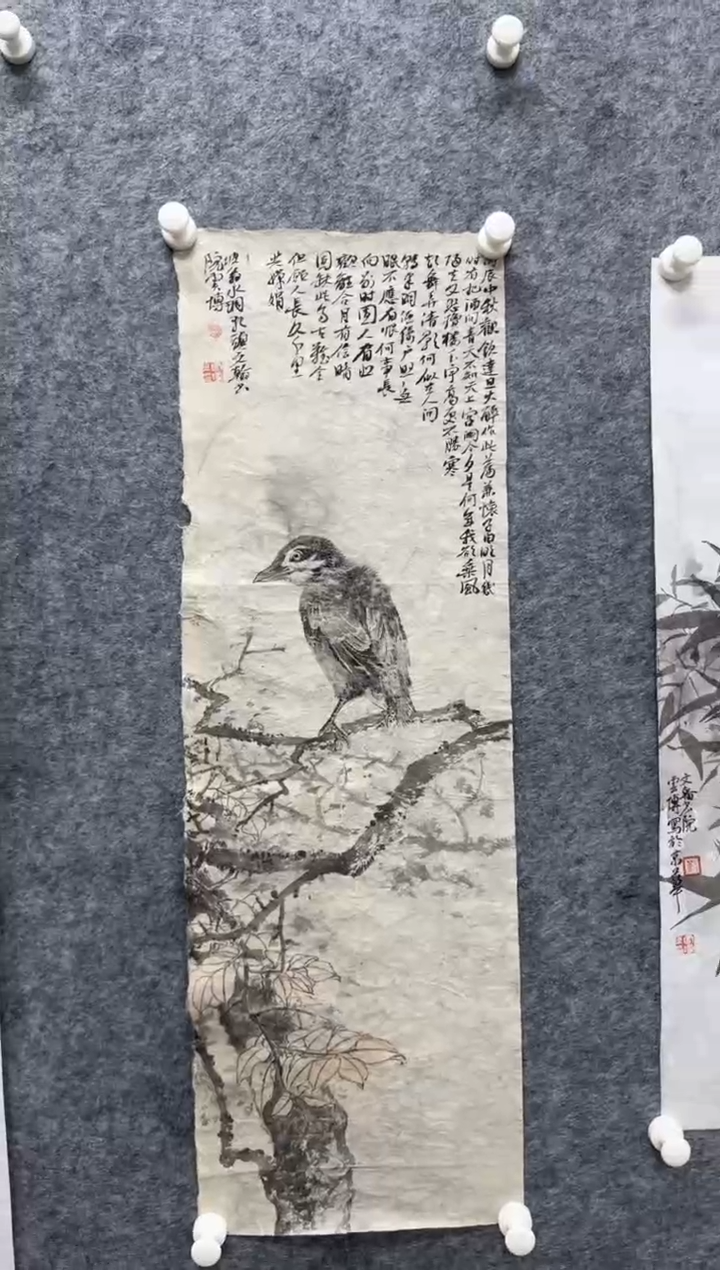 丙辰中秋歡飲達旦大醉作此篇兼懷子由明月幾
時有把酒問青天不知天上宮闕今夕是何年我欲乘風
歸去又恐瓊樓玉宇高處不勝寒
起舞弄清影何似在人間
轉朱閣低綺戶照無
眠不應有恨何事長
向別時圓人有悲
歡離合月有陰晴
圓缺此事古難全
但願人長久千里
共嬋娟
水調歌頭文翰
院雲博
文翰書院
雲博寫於京華